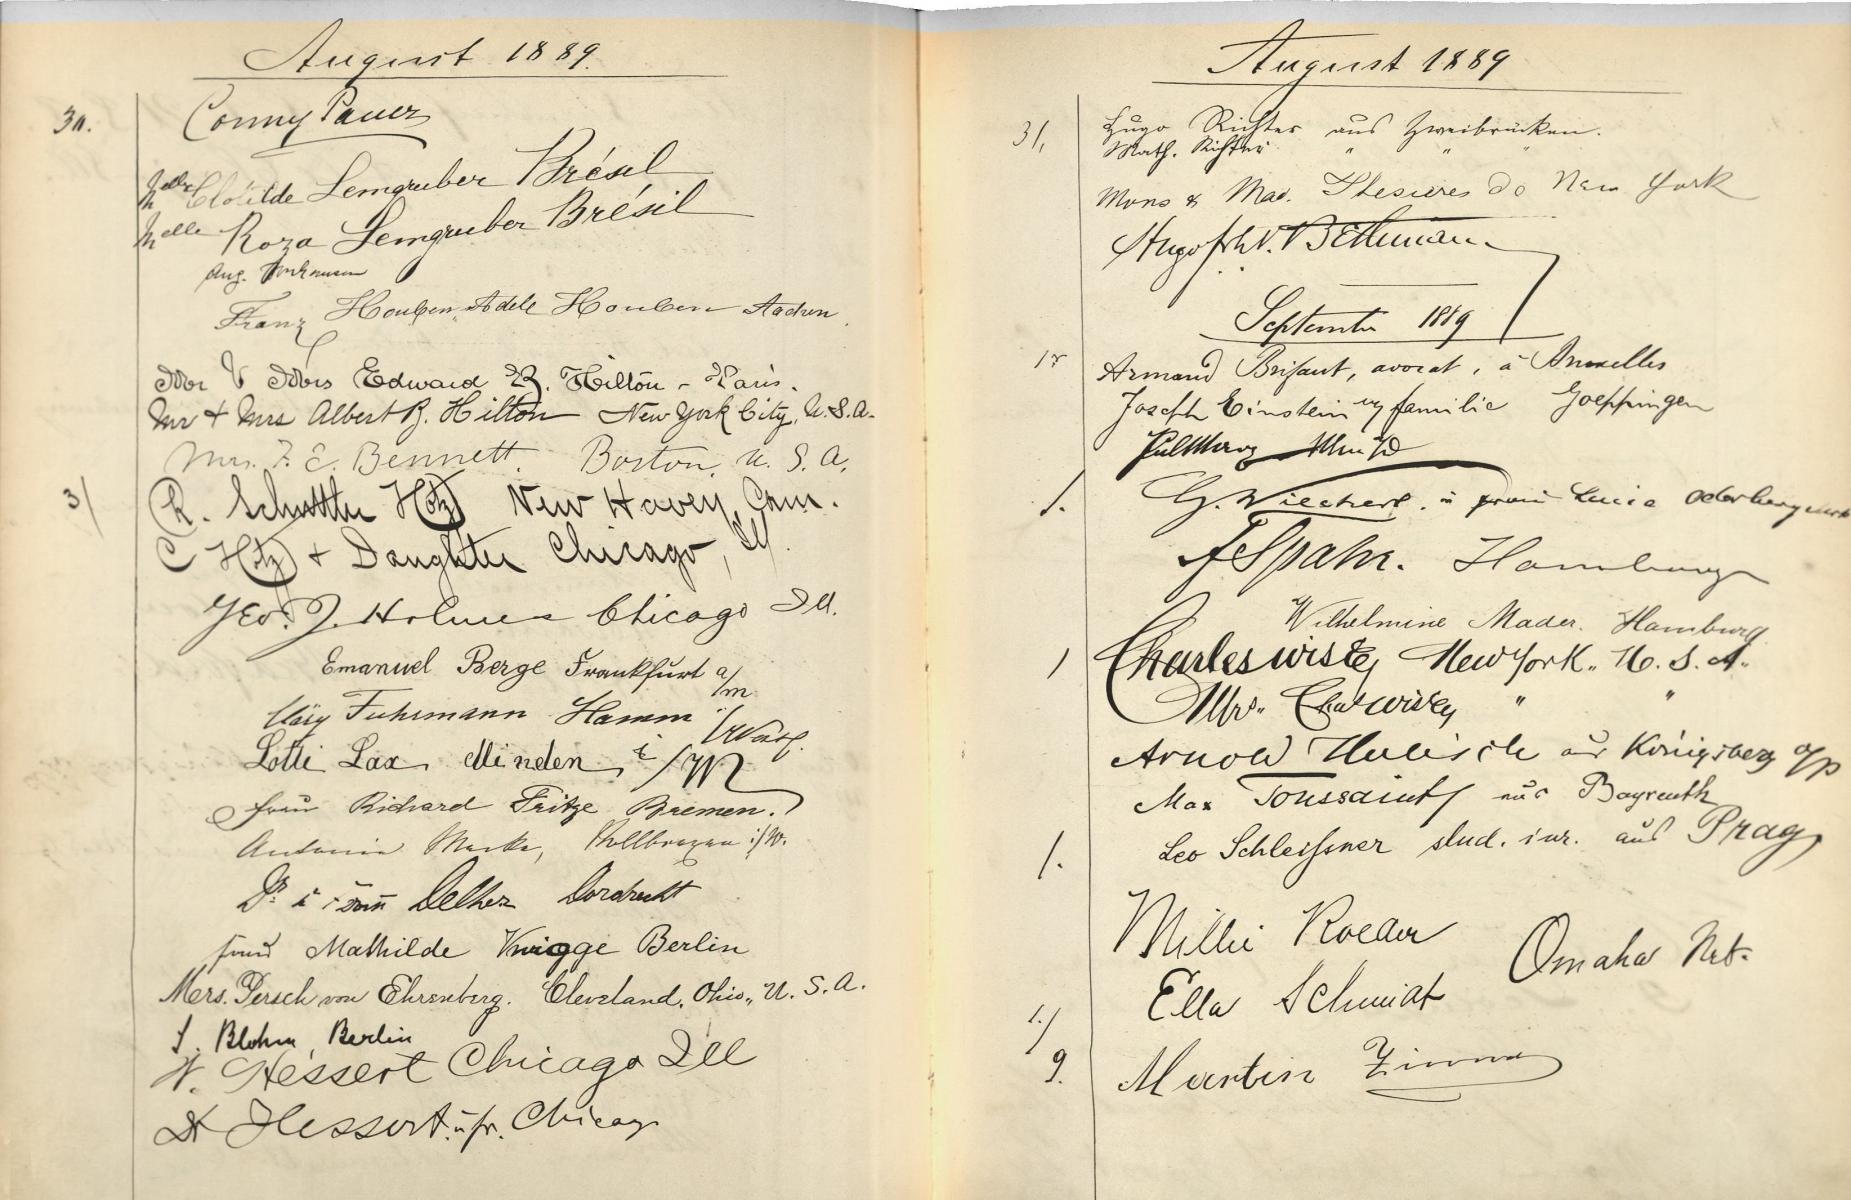 August 1889.
30.
Conny Pauer
Melle Clotilde Lemgruber Brésil
Melle Roza Lemgruber Brésil
Aug.
Franz Houben, Adele Houben Aachen
Mr & Mrs Edward R. Hilton - Paris.
Mr + Mrs Albert B. Hilton New York City, U.S.A.
Mrs. F. E. Bennett. Boston, U. S. A.
31
R. Hotz New Haven, Conn.
C Hotz + Daughter Chicago, Ill.
Geo. J. Holmes Chicago Ill.
Emanuel Berge Frankfurt a/m
Fuhrmann Hamm i/Westf.
Lotti Lax, Minden, i/W
Frau Richard Fritze Bremen.
Antonie i/W.
Dr. Dordrecht
Frau Mathilde Knigge Berlin
Mrs. Persch von Ehrenberg. Cleveland, Ohio, U. S. A.
J. Blohm, Berlin
W. Hessert Chicago Ill
Hessert u. fr. Chicago
August 1889
31,
Hugo Richter aus Zweibrücken.
Math. Richter " " "
Mons & Mad. do New York
Hugo frh. v. Bethmann
September 1889
1r
Armand Brifaut, avocat, à Bruxelles
Joseph Einstein u familie Goeppingen
1.
G. Wiechert. u frau Lucie
F Spahr. Hamburg
Wilhelmine Mader. Hamburg
1
Charles Wisey New York. U. S. A.
Mrs. Chas Wisey " "
Arnold aus Königsberg o/p
Max Toussaint aus Bayreuth
1.
Leo Schleissner stud. iur. aus Prag
Millie Roeder
Omaha Neb.
Ella Schmidt
1./9.
Martin Zimmer